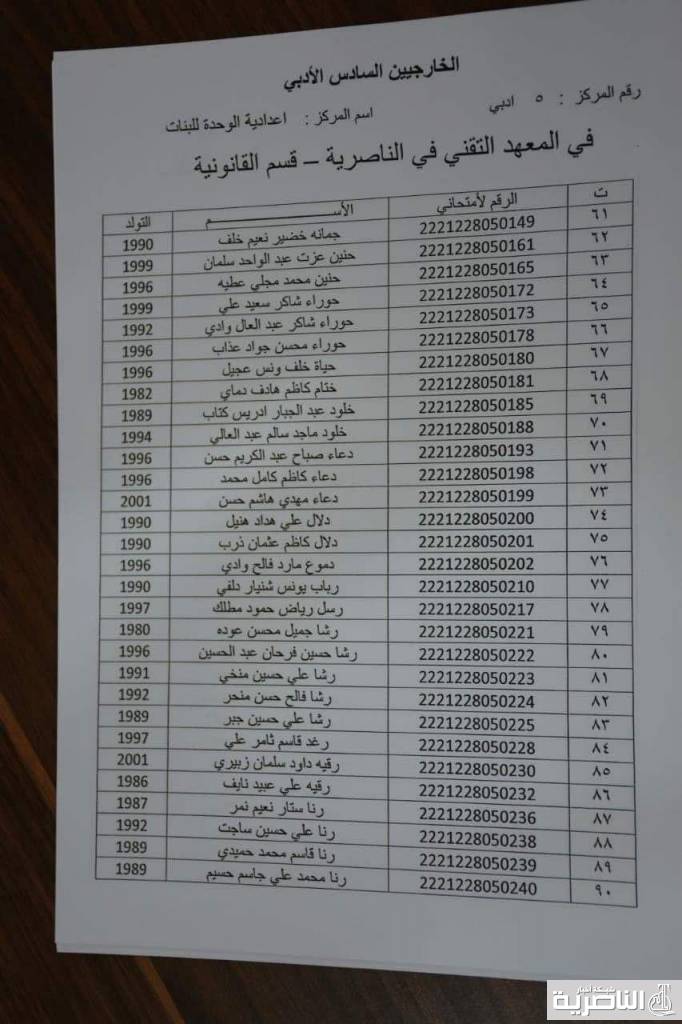 الخارجيين السادس الأدبي
رقم المركز : ٥ ادبي اسم المركز : اعدادية الوحدة للبنات
في المعهد التقني في الناصرية – قسم القانونية
ت الرقم لأمتحاني الأســـــــم التولد
٦١ 2221228050149 جمانه خضير نعيم خلف 1990
٦٢ 2221228050161 حنين عزت عبد الواحد سلمان 1999
٦٣ 2221228050165 حنين محمد مجلي عطيه 1996
٦٤ 2221228050172 حوراء شاكر سعيد علي 1999
٦٥ 2221228050173 حوراء شاكر عبد العال وادي 1992
٦٦ 2221228050178 حوراء محسن جواد عذاب 1996
٦٧ 2221228050180 حياة خلف ونس عجيل 1996
٦٨ 2221228050181 ختام كاظم هادف دماي 1982
٦٩ 2221228050185 خلود عبد الجبار ادريس كتاب 1989
٧٠ 2221228050188 خلود ماجد سالم عبد العالي 1994
٧١ 2221228050193 دعاء صباح عبد الكريم حسن 1996
٧٢ 2221228050198 دعاء كاظم كامل محمد 1996
٧٣ 2221228050199 دعاء مهدي هاشم حسن 2001
٧٤ 2221228050200 دلال علي هداد هنيل 1990
٧٥ 2221228050201 دلال كاظم عثمان ذرب 1990
٧٦ 2221228050202 دموع مارد فالح وادي 1996
٧٧ 2221228050210 رباب يونس شنيار دلفي 1990
٧٨ 2221228050217 رسل رياض حمود مطلك 1997
٧٩ 2221228050221 رشا جميل محسن عوده 1980
٨٠ 2221228050222 رشا حسين فرحان عبد الحسين 1996
٨١ 2221228050223 رشا علي حسين منخي 1991
٨٢ 2221228050224 رشا فالح حسن منحر 1992
٨٣ 2221228050225 رشا علي حسين جبر 1989
٨٤ 2221228050228 رغد قاسم ثامر علي 1997
٨٥ 2221228050230 رقيه داود سلمان زبيري 2001
٨٦ 2221228050232 رقيه علي عبيد نايف 1986
٨٧ 2221228050236 رنا ستار نعيم نمر 1987
٨٨ 2221228050238 رنا علي حسين ساجت 1992
٨٩ 2221228050239 رنا قاسم محمد حميدي 1989
٩٠ 2221228050240 رنا محمد علي جاسم حسيم 1989
شبكة أخبار
الناصرية